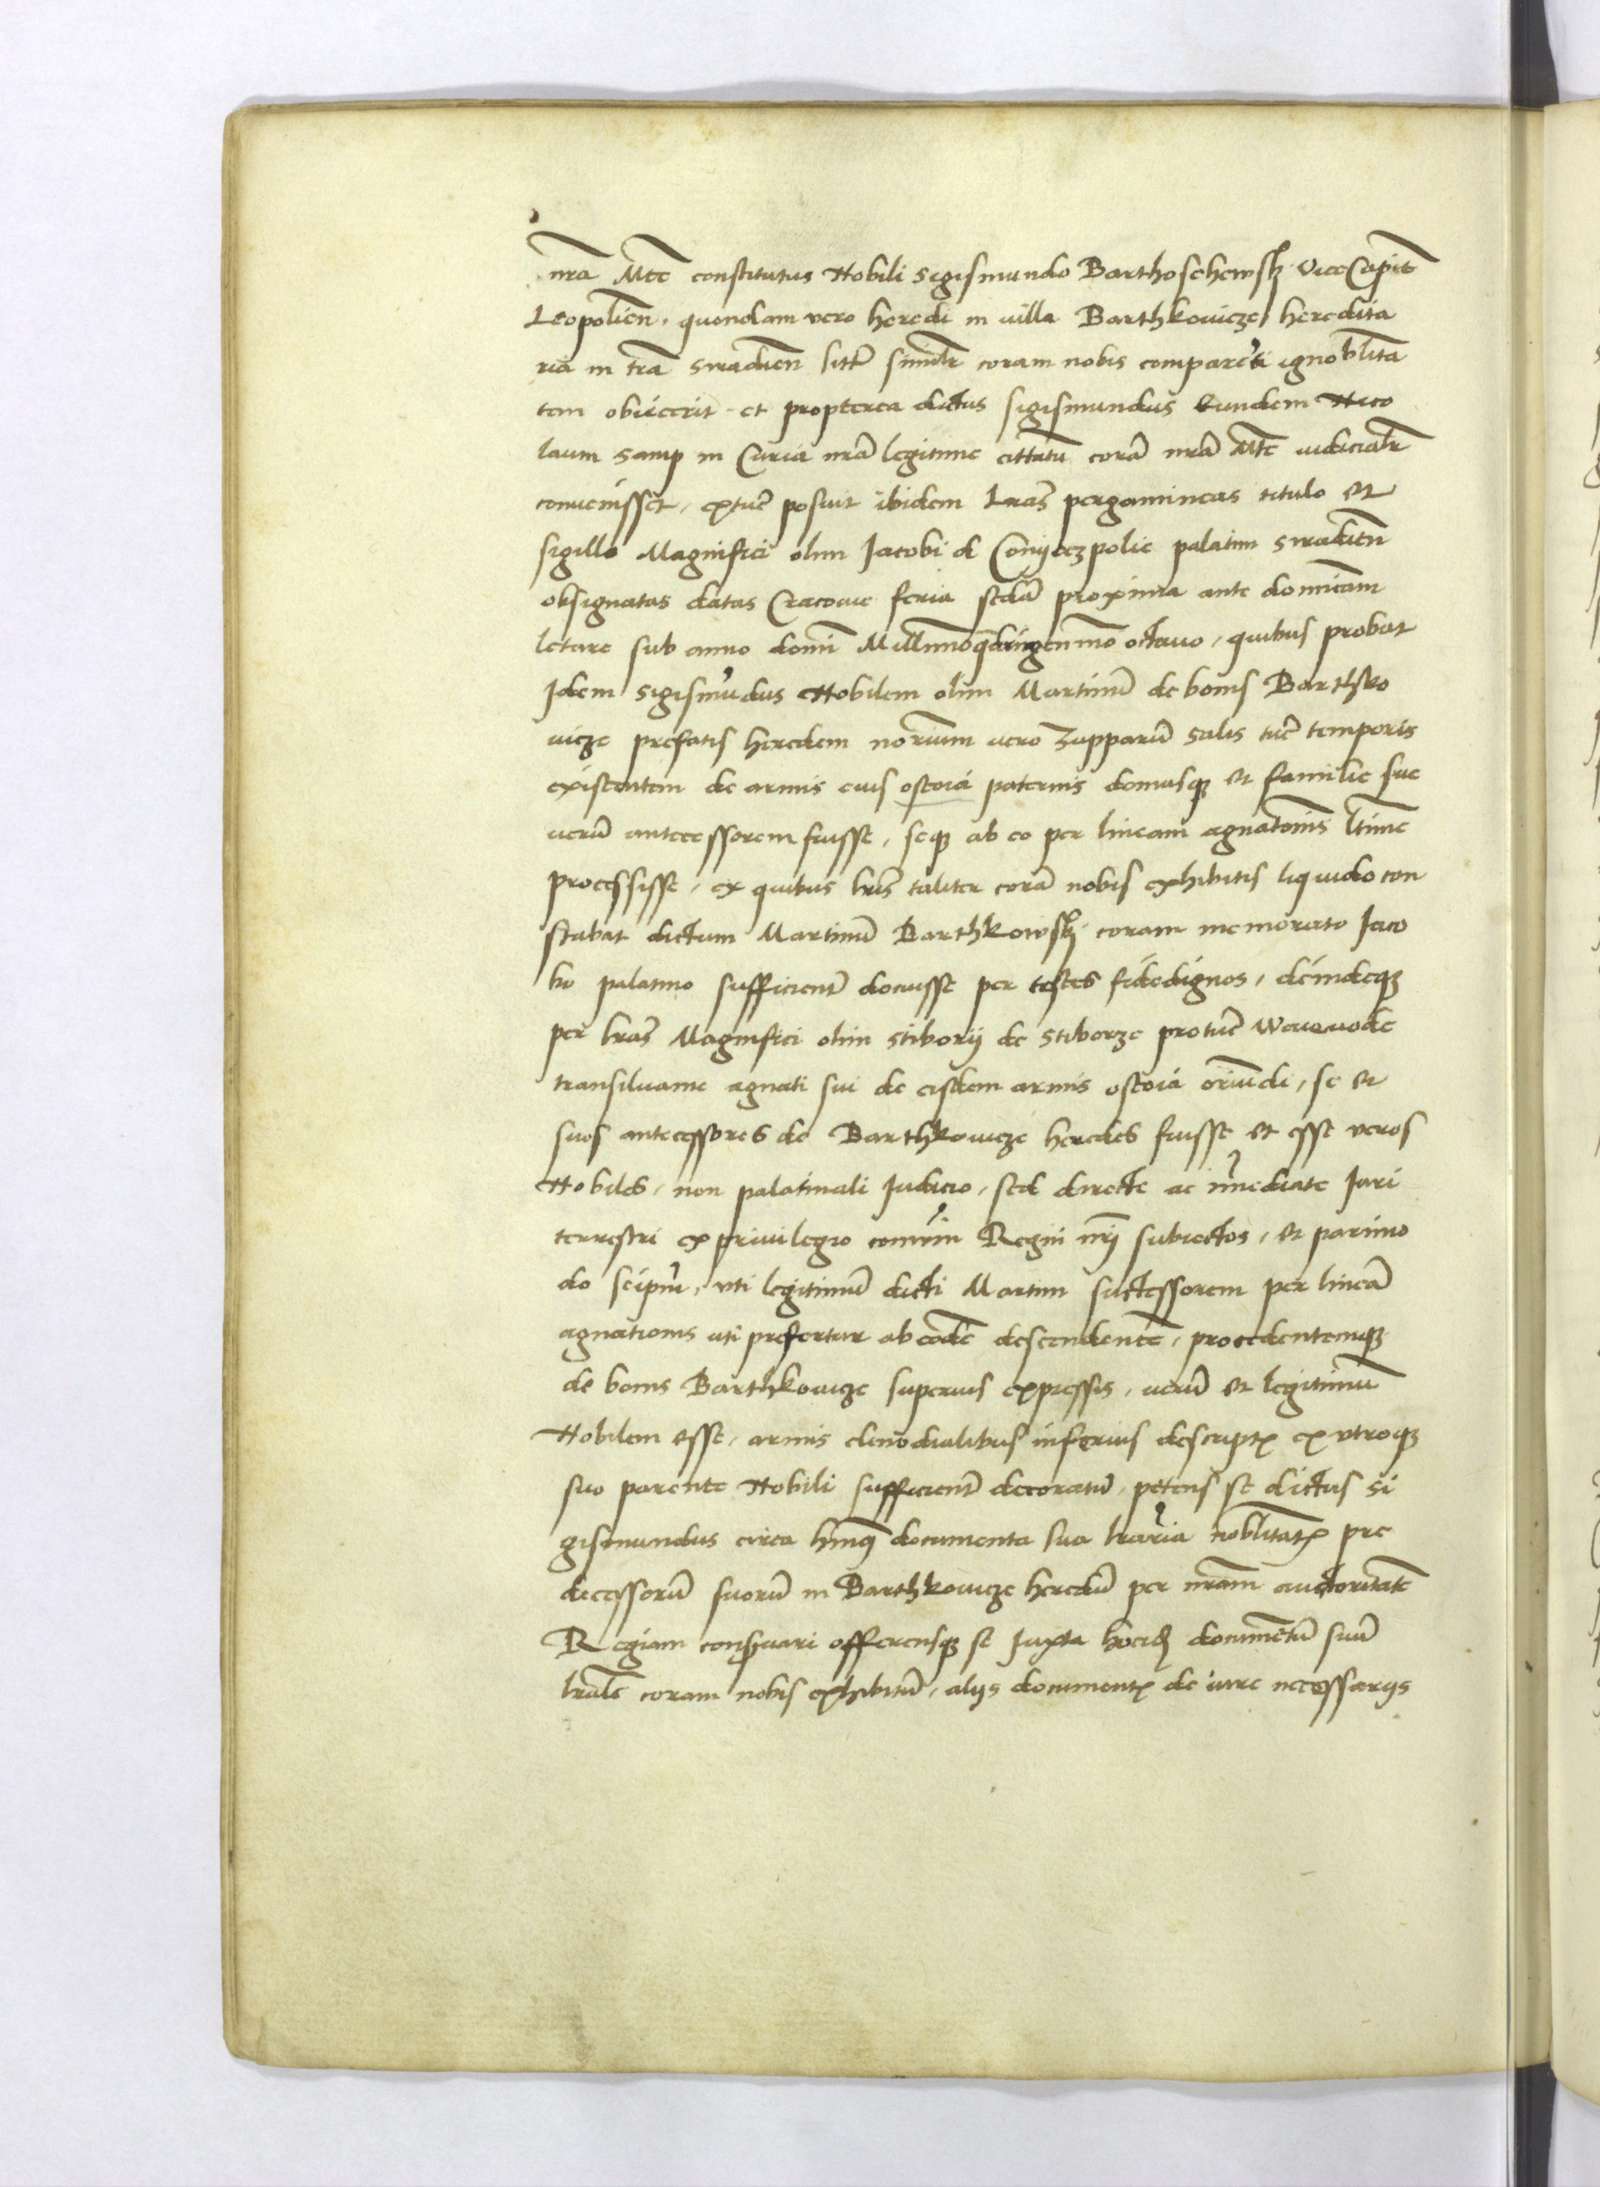 nra Mte constitutus Nobili Sigismundo Barthoschewsky ViceCapit
Leopolien, quondam vero heredi in villa Barthkovicze heredita
ria in tra Siradien similr coram nobis comparenti ignoblita
tem obiicerit et propterea dictus Sigismundus Eundem Nico
laum Samp in Curia nra legitime cittatu cora nra Mte iudicialr
convenisset, extuc posuit ibidem Lras pergamineas titulo et
sigillo Magnifici olim Jacobi de Conyeczpolie palatini Siradien
obsignatas datas Cracovie feria secda proxima ante dominicam
letare sub anno domi Millimoqadringenmo octavo, quibus probat
Idem Sigismudus Nobilem olim Martinu de bonis Barthko
vicze prefatis heredem norium vero Zupparu Salis tuc temporis
existentem de armis eius ostoia paternis domusq et familie sue
veru antecessorem fuisse, seq ab eo per lineam agnationis ltime
processisse, ex quibus lris taliter cora nobis exhibitis liquido con
stabat dictum Martinu Barthkowsky coram memorato Jaco
bo palatino sufficient docuisse per testes fidedignos, deindeq
per lras Magnifici olim Stiborii de Stiborze protuc Wevode
transilvanie agnati sui de eisdem armis ostoia oriudi, se et
suos antecessores de Barthkovicze heredes fuisse et esse veros
Nobiles, non palatinali Judicio, sed directe ac imediate Juri
terrestri ex privilegio comuni Regni nri subiectos, et parimo
do seipm, uti legitimu dicti Martini successorem per linea
agnationis uti prefertur ab eode descendente, procedentemq
de bonis Barthkovicze superius expressis, veru et legitimu
Nobilem esse, armis clenodialibus inferius descriptis ex utroq
suo parente Nobili sufficient decoratu, petens se dictus Si
gismundus circa hmoi documenta sua lraria noblitatis pre
decessoru suoru in Barthkovicze heredu per nram auctoritate
Regiam conservari offerensq se Juxta documetu suu
lrale coram nobis exhibitu, aliis documentis de iure necessariis